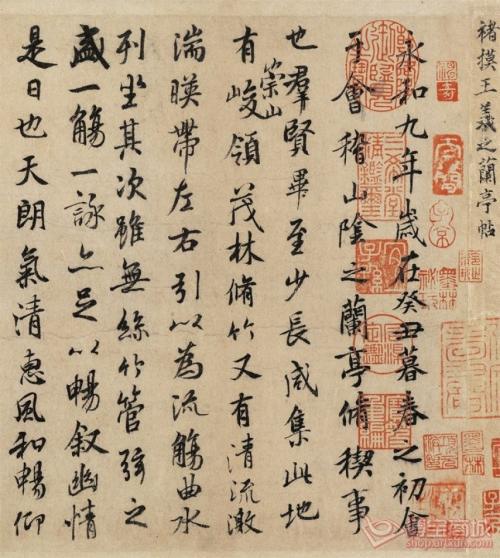 褚摸王羲之蘭亭帖
永和九年歲在癸丑暮春之初會
于會稽山陰之蘭亭脩稧事
也羣賢畢至少長咸集此地
有崇山峻領茂林脩竹又有清流激
湍暎帶左右引以為流觴曲水
列坐其次雖無絲竹管弦之
盛一觴一詠亦足以暢敘幽情
是日也天朗氣清惠風和暢仰
shop.artxun.com